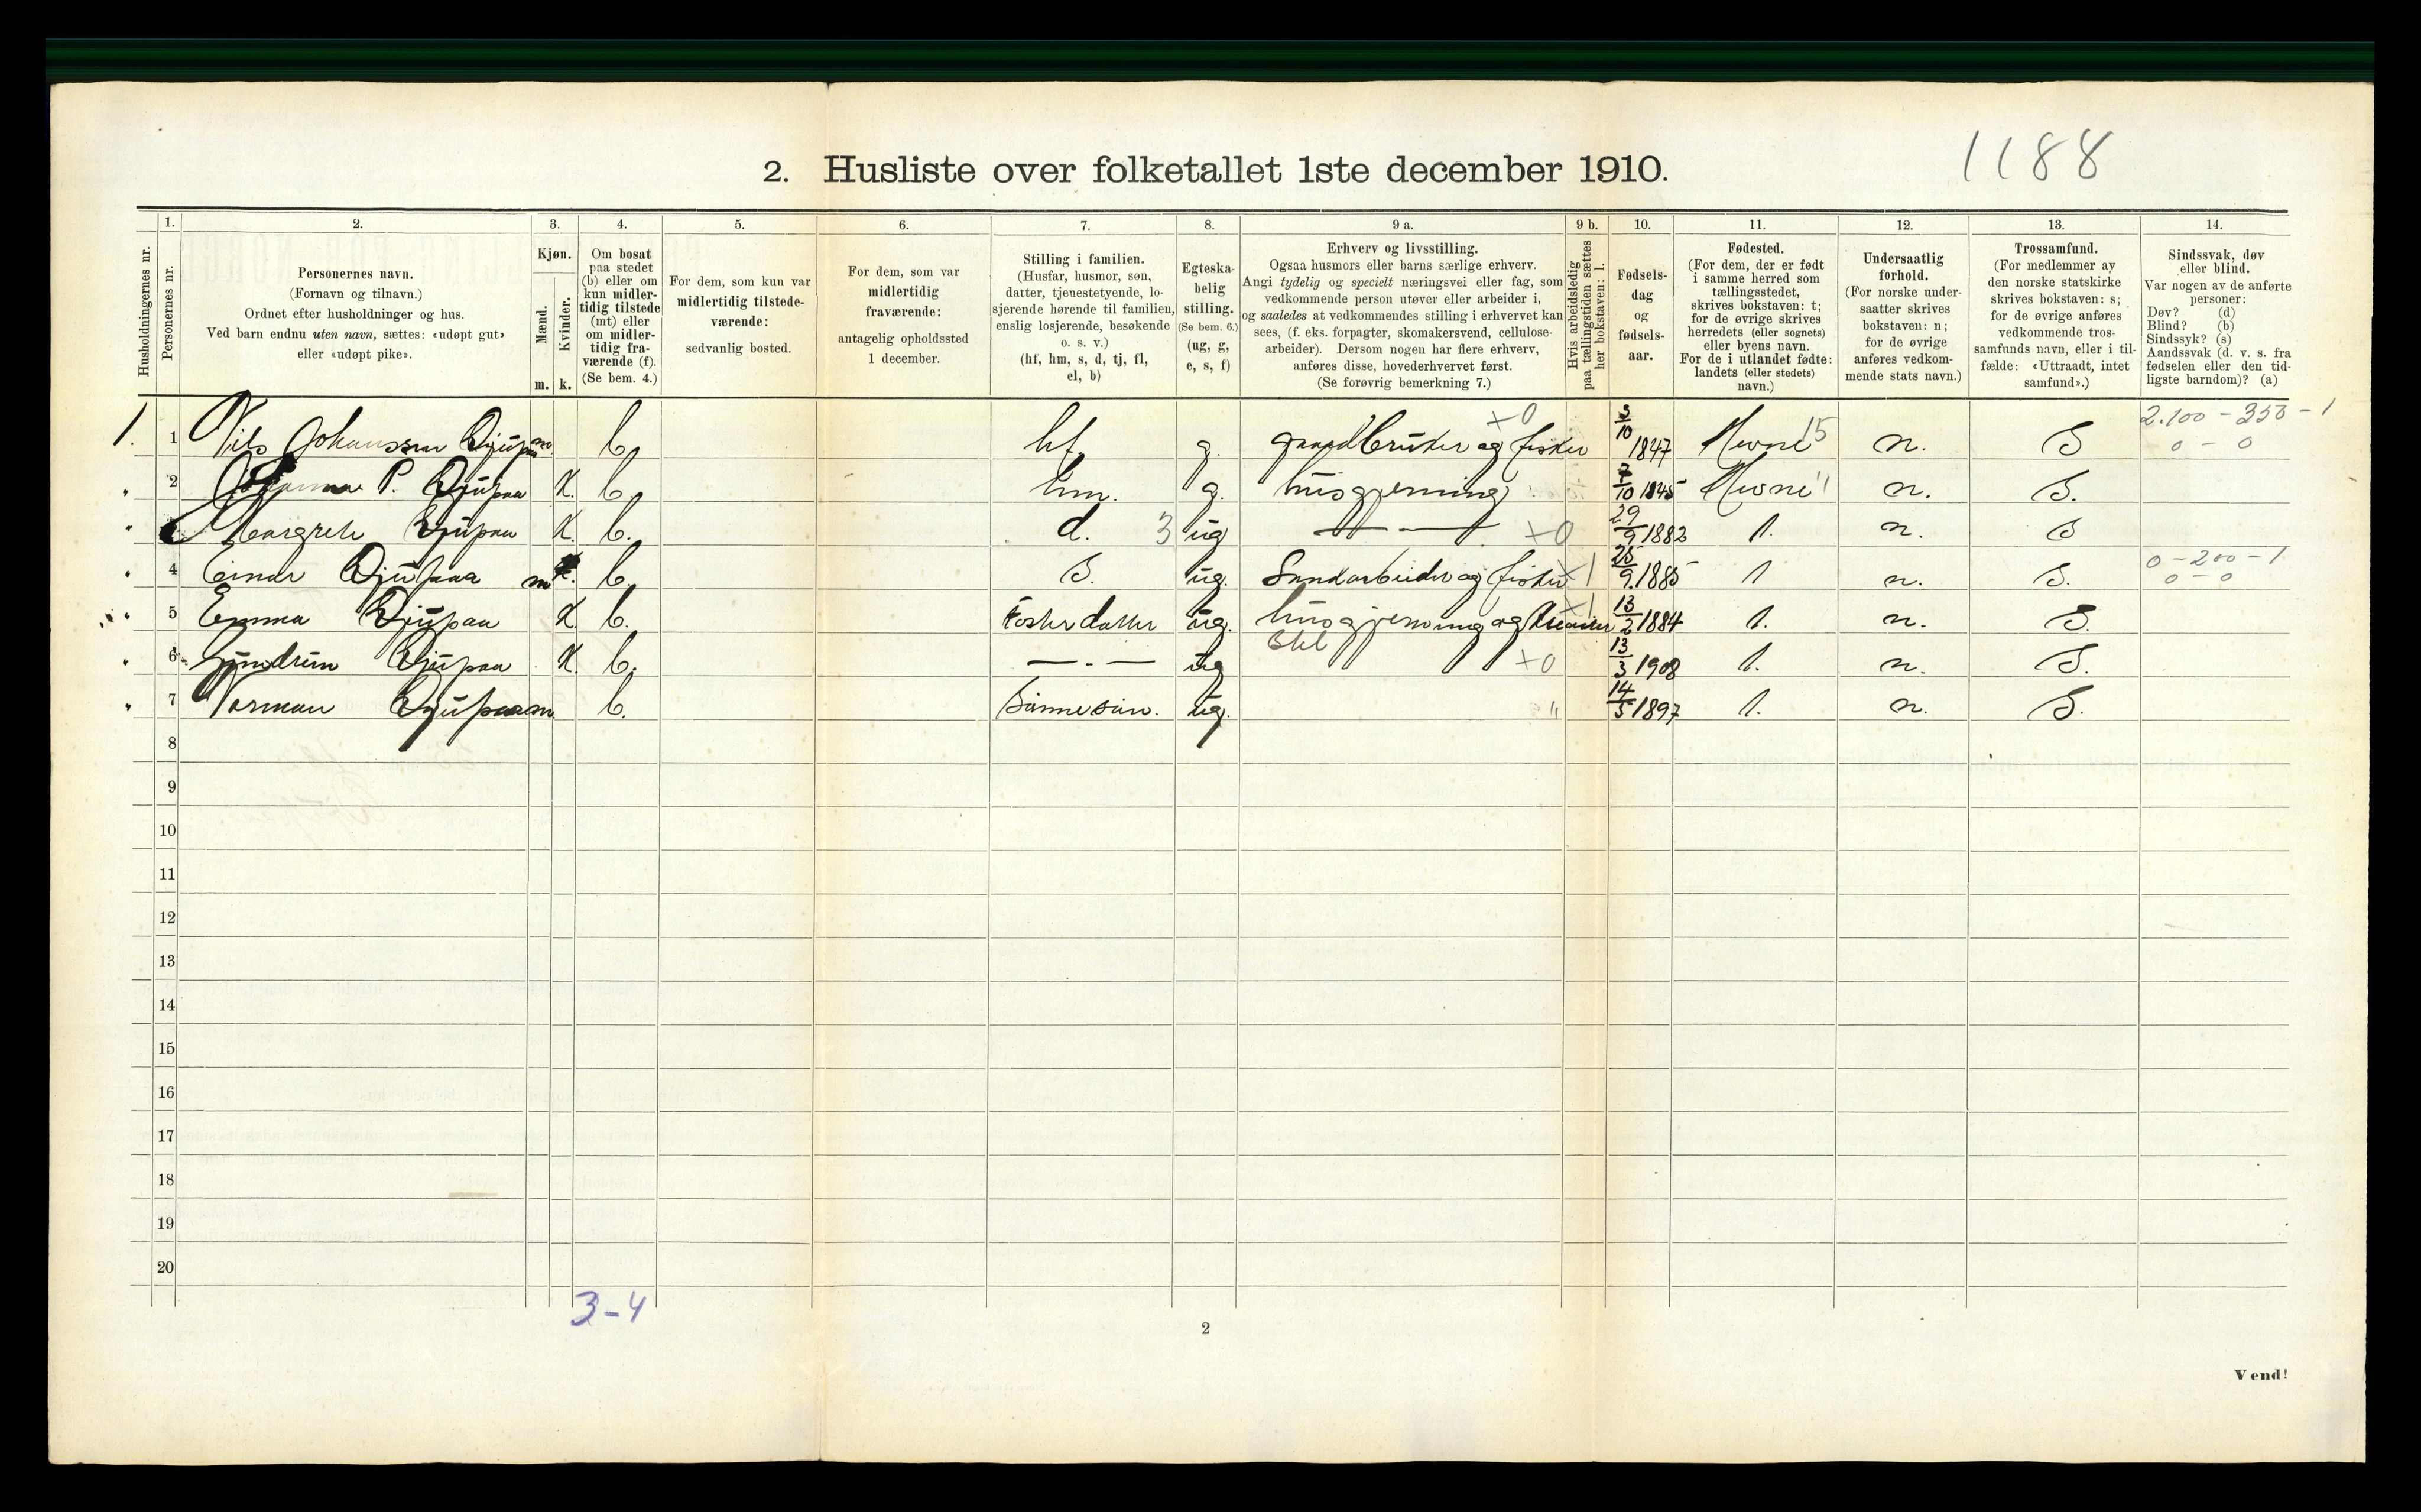 1188
2. Husliste over folketallet 1ste december 1910.
Husholdningernes nr.
1. Personernes nr.
2. Personernes navn. (Fornavn og tilnavn.) Ordnet efter husholdninger og hus. Ved barn endnu uten navn, sættes: «udøpt gut» eller «udøpt pike».
3. Kjøn. Mænd. m. Kvinder. k.
4. Om bosat paa stedet (b) eller om kun midlertidig tilstede (mt) eller om midlertidig fraværende (f). (Se bem. 4.)
5. For dem, som kun var midlertidig tilstedeværende: sedvanlig bosted.
6. For dem, som var midlertidig fraværende: antagelig opholdssted 1 december.
7. Stilling i familien. (Husfar, husmor, søn, datter, tjenestetyende, losjerende hørende til familien, enslig losjerende, besøkende o. s. v.) (hf, hm, s, d, tj, fl, el, b)
8. Egteskabelig stilling. (Se bem. 6.) (ug, g, e, s, f)
9 a. Erhverv og livsstilling. Ogsaa husmors eller barns særlige erhverv. Angi tydelig og specielt næringsvei eller fag, som vedkommende person utøver eller arbeider i, og saaledes at vedkommendes stilling i erhvervet kan sees, (f. eks. forpagter, skomakersvend, cellulosearbeider). Dersom nogen har flere erhverv, anføres disse, hovederhvervet først. (Se forøvrig bemerkning 7.)
9 b. Hvis arbeidsledig paa tællingstiden sættes her bokstaven: l.
10. Fødselsdag og fødselsaar.
11. Fødested. (For dem, der er født i samme herred som tællingsstedet, skrives bokstaven: t; for de øvrige skrives herredets (eller sognets) eller byens navn. For de i utlandet fødte: landets (eller stedets) navn.)
12. Undersaatlig forhold. (For norske undersaatter skrives bokstaven: n; for de øvrige anføres vedkommende stats navn.)
13. Trossamfund. (For medlemmer av den norske statskirke skrives bokstaven: s; for de øvrige anføres vedkommende trossamfunds navn, eller i tilfælde: «Uttraadt, intet samfund».)
14. Sindssvak, døv eller blind. Var nogen av de anførte personer: Døv? (d) Blind? (b) Sindssyk? (s) Aandssvak (d. v. s. fra fødselen eller den tidligste barndom)? (a)
1. 1 Nils Johanssen Djupaa m b. hf. g. gaardbruker og fisker x0 3/10 1847 Hevne 15 n. S 2.100 - 350 - 1 0 - 0
" 2 Johanna P. Djupaa K. b. hm. g. husgjerning 7/10 1845 Hevne " n. S.
" 3 Margrete Djupaa K. b. d. 3 ug — - — x0 29/9 1882 t. n. S
" 4 Einar Djupaa m b. S. ug. Sandarbeider og fisker x1 25/9 1885 t n. S. 0 - 200 - 1 0 - 0
" 5 Emma Djupaa K. b. Foster datter ug. husgjerning og kreaturstel x1 13/2 1884 t. n. S.
" 6 Gundrun Djupaa K b. — - — ug x0 13/3 1908 t. n. S.
" 7 Norman Djupaa m b. Sønnesøn. ug. " 14/5 1897 t. n. S.
8
9
10
11
12
13
14
15
16
17
18
19
20
3-4
2
Vend!